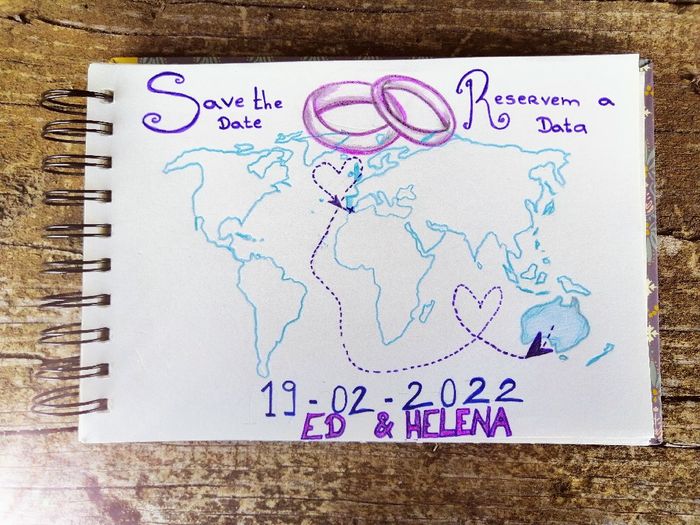 Save the
Date
Reservem a
Data
19-02-2022
ED & HELENA